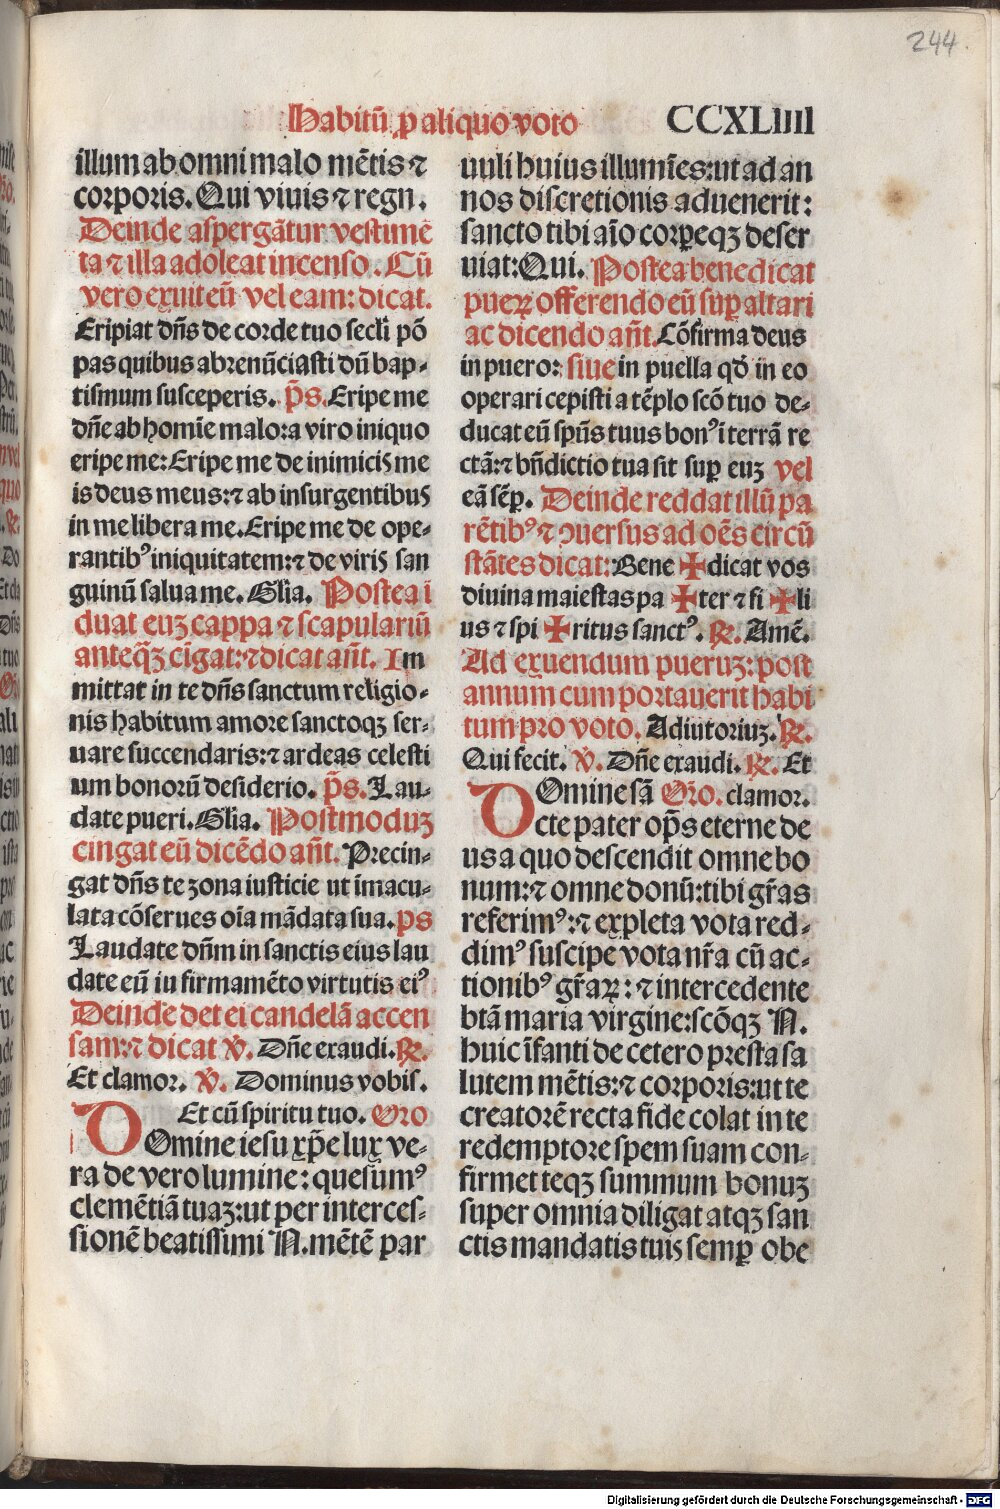 244.
Habitū ꝓ aliquo voto CCXLIIII
illum ab omni malo mētis ⁊
corporis. Qui viuis ⁊ regn.
Deinde aspergātur vestimē
ta ⁊ illa adoleat incenso. Cū
vero exuit eū vel eam: dicat.
Eripiat dn̄s de corde tuo secl̄i pō
pas quibus abrenūciasti dū bap-
tismum susceperis. p̄s. Eripe me
dn̄e ab homīe malo: a viro iniquo
eripe me: Eripe me de inimicis me
is deus meus: ⁊ ab insurgentibus
in me libera me. Eripe me de ope-
rantibꝰ iniquitatem: ⁊ de viris san
guinū salua me. Glīa. Postea i
duat euꝫ cappa ⁊ scapulariū
anteqꝫ̄ cīgat: ⁊ dicat an̄t. Im
mittat in te dn̄s sanctum religio-
nis habitum amore sanctoqꝫ ser-
uare succendaris: ⁊ ardeas celesti
um bonorū desiderio. p̄s. Lau-
date pueri. Glīa. Postmoduꝫ
cingat eū dicēdo an̄t. Precin-
gat dn̄s te zona iusticie ut īmacu-
lata cōserues oīa mādata sua. ps
Laudate dn̄m in sanctis eius lau
date eū iu firmamēto virtutis eiꝰ
Deinde det ei candelā accen
sam: ⁊ dicat ꝟ. Dn̄e exaudi. ℞.
Et clamor. ꝟ. Dominus vobis.
Et cū spiritu tuo. Oro
DOmine iesu xp̄e lux ve-
ra de vero lumine: quesumꝰ
clemētiā tuaꝫ: ut per interces-
sionē beatissimi N. mētē par
uuli huius illumīes: ut ad an
nos discretionis aduenerit:
sancto tibi aīo corꝑeqꝫ deser
uiat: Qui. Postea benedicat
pueꝝ offerendo eū suꝑ altari
ac dicendo an̄t. Cōfirma deus
in puero: siue in puella qd̄ in eo
operari cepisti a tēplo scō tuo de-
ducat eū spūs tuus bonꝰ i terrā re
ctā: ⁊ bn̄dictio tua sit suꝑ euꝫ vel
eā sēꝑ. Deinde reddat illū pa
rētibꝰ ⁊ ꝯuersus ad oēs circū
stātes dicat: Bene ✠ dicat vos
diuina maiestas pa ✠ ter ⁊ fi ✠ li
us ⁊ spi ✠ ritus sanctꝰ. ℞. Amē.
Ad exuendum pueruꝫ: post
annum cum portauerit habi
tum pro voto. Adiutoriuꝫ. ℞.
Qui fecit. ꝟ. Dn̄e exaudi. ℞. Et
DOmine sā Oro. clamor.
cte pater op̄s eterne de
us a quo descendit omne bo
num: ⁊ omne donū: tibi gr̄as
referimꝰ: ⁊ expleta vota red-
dimꝰ suscipe vota nr̄a cū ac-
tionibꝰ gr̄aꝝ: ⁊ intercedente
btā maria virgine: scōqꝫ N.
huic īfanti de cetero presta sa
lutem mētis: ⁊ corporis: ut te
creatorē recta fide colat in te
redemptore spem suam con-
firmet teqꝫ summum bonuꝫ
super omnia diligat atqꝫ san
ctis mandatis tuis semꝑ obe
Digitalisierung gefördert durch die Deutsche Forschungsgemeinschaft - DFG